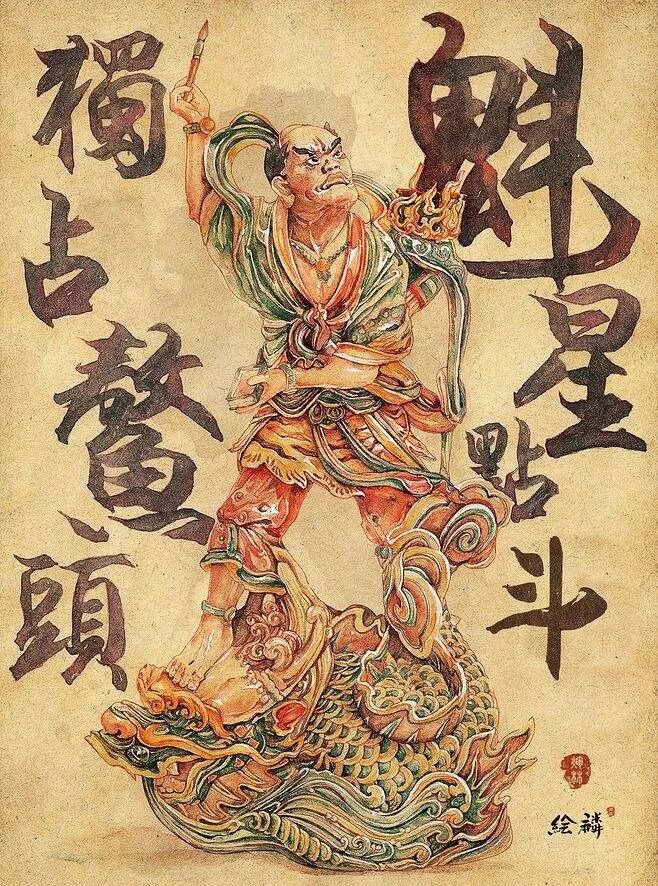 魁星點斗
獨占鰲頭
絵